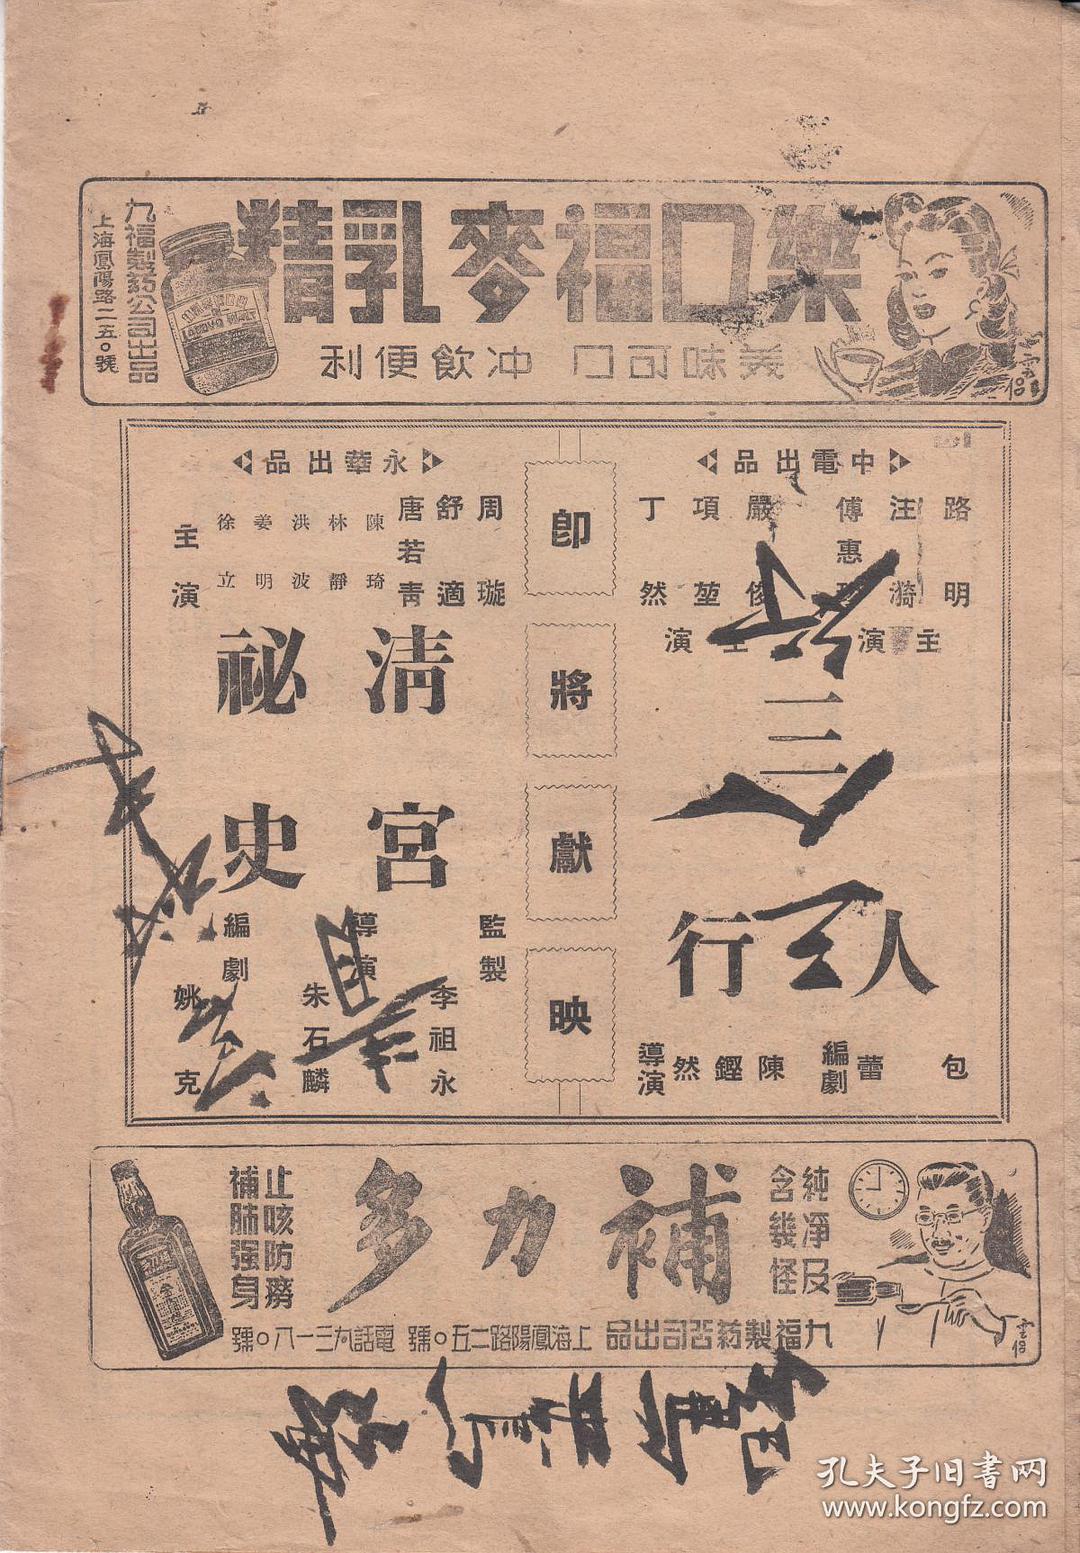 樂口福麥乳精
美味可口 冲飲便利
九福製葯公司出品
上海鳳陽路二五〇號
即將獻映
中電出品
路明
汪漪
傅惠
主演
嚴俊
項堃
丁然
主演
三人行
編劇
包蕾
導演
陳鏗然
永華出品
周璇
舒適
唐若青
陳琦
林靜
洪波
姜明
徐立
主演
清宮祕史
監製
李祖永
導演
朱石麟
編劇
姚克
補力多
純淨及
含幾怪
止咳防癆
補肺强身
九福製葯公司出品 上海鳳陽路二五〇號 電話九三一八〇號
雲侶
雲侶
孔夫子旧書网
www.kongfz.com